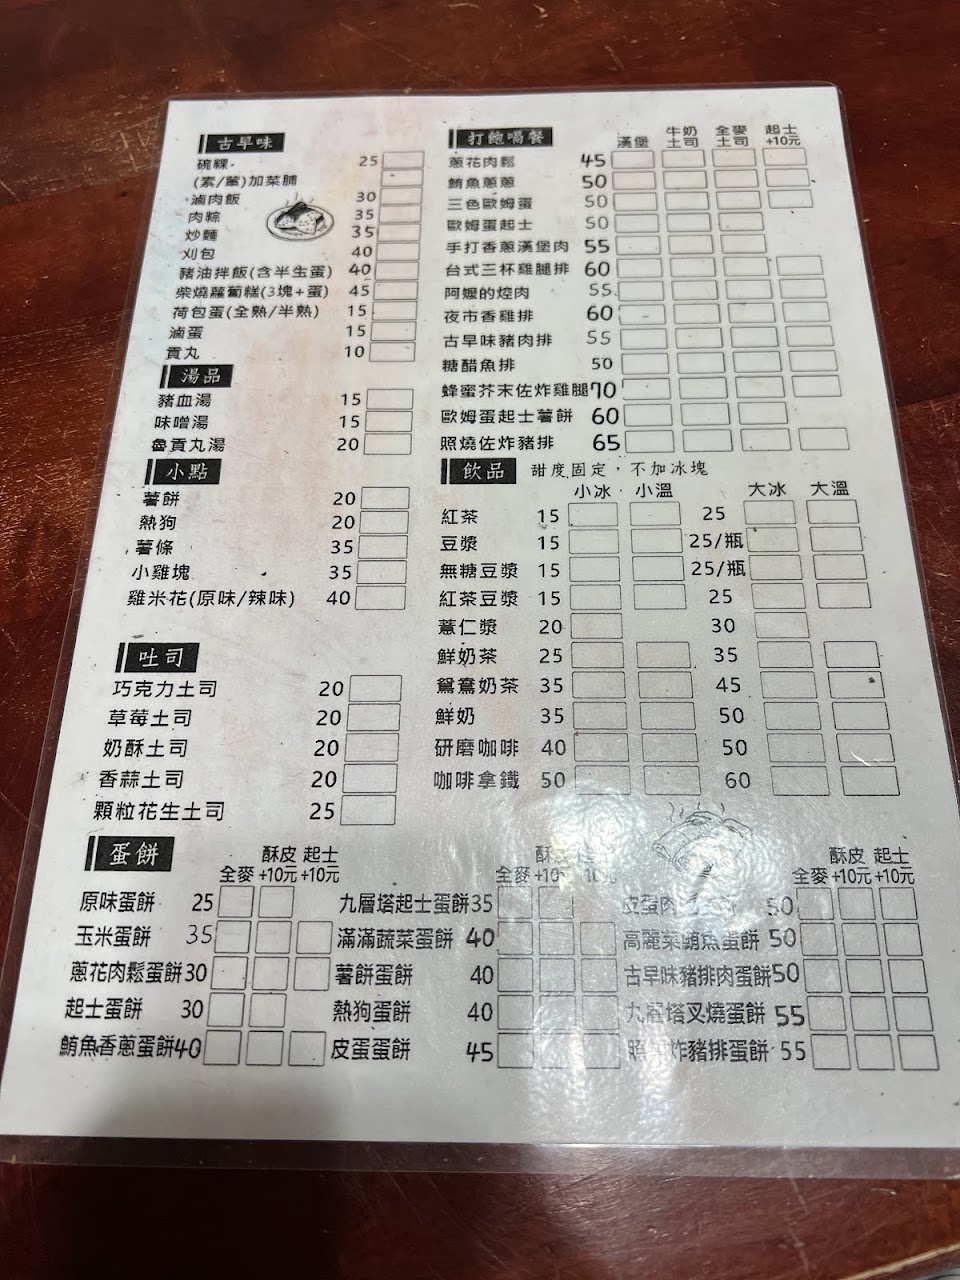 古早味
碗粿 25
(素/葷)加菜脯
滷肉飯 30
肉粽 35
炒麵 35
刈包 40
豬油拌飯(含半生蛋) 40
柴燒蘿蔔糕(3塊+蛋) 45
荷包蛋(全熟/半熟) 15
滷蛋 15
貢丸 10
湯品
豬血湯 15
味噌湯 15
魯貢丸湯 20
小點
薯餅 20
熱狗 20
薯條 35
小雞塊 35
雞米花(原味/辣味) 40
吐司
巧克力土司 20
草莓土司 20
奶酥土司 20
香蒜土司 20
顆粒花生土司 25
打飽喝餐 漢堡 牛奶土司 全麥土司 起士+10元
蔥花肉鬆 45
鮪魚蔥蔥 50
三色歐姆蛋 50
歐姆蛋起士 50
手打香蔥漢堡肉 55
台式三杯雞腿排 60
阿嬤的焢肉 55
夜市香雞排 60
古早味豬肉排 55
糖醋魚排 50
蜂蜜芥末佐炸雞腿 70
歐姆蛋起士薯餅 60
照燒佐炸豬排 65
飲品 甜度固定，不加冰塊
小冰 小溫 大冰 大溫
紅茶 15 25
豆漿 15 25/瓶
無糖豆漿 15 25/瓶
紅茶豆漿 15 25
薏仁漿 20 30
鮮奶茶 25 35
鴛鴦奶茶 35 45
鮮奶 35 50
研磨咖啡 40 50
咖啡拿鐵 50 60
蛋餅
全麥 酥皮+10元 起士+10元
原味蛋餅 25
玉米蛋餅 35
蔥花肉鬆蛋餅 30
起士蛋餅 30
鮪魚香蔥蛋餅 40
全麥 酥皮+10
九層塔起士蛋餅 35
滿滿蔬菜蛋餅 40
薯餅蛋餅 40
熱狗蛋餅 40
皮蛋蛋餅 45
全麥 酥皮+10元 起士+10元
皮蛋肉 50
高麗菜鮪魚蛋餅 50
古早味豬排肉蛋餅 50
九層塔叉燒蛋餅 55
照 炸豬排蛋餅 55